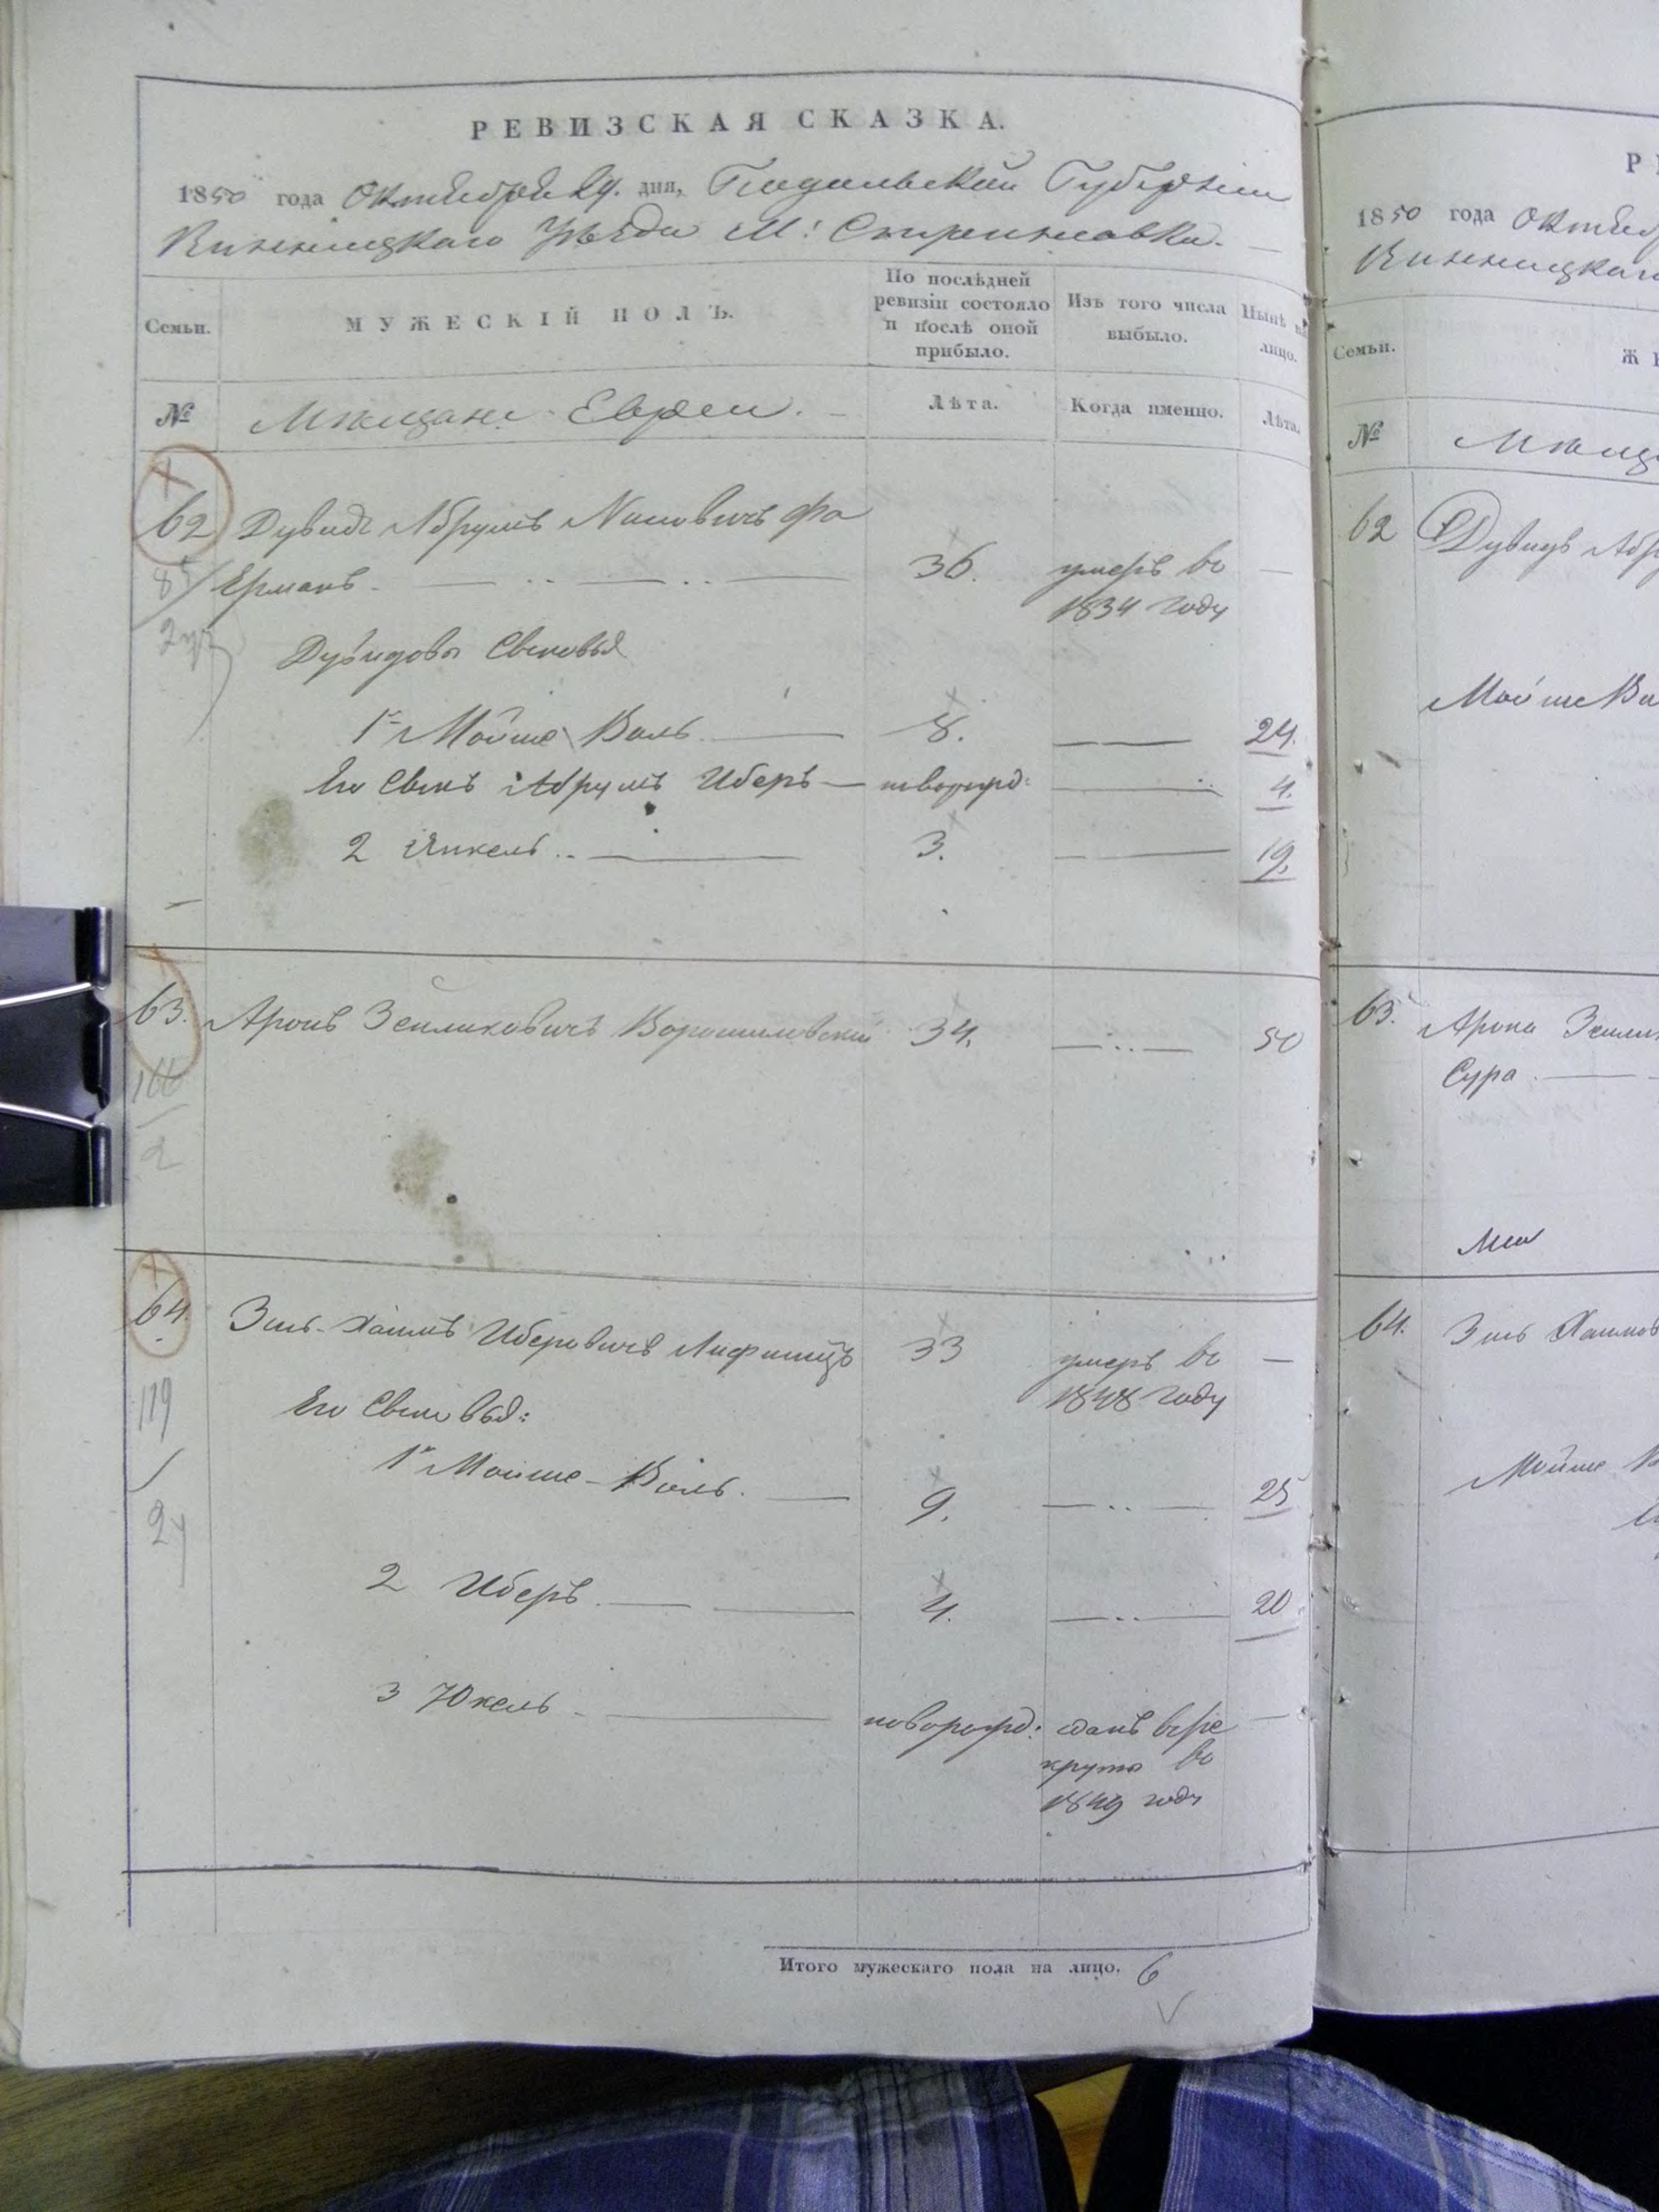 РЕВИЗСКАЯ СКАЗКА.
1850 года Октября 24. дня, Подольской Губерніи
Винницкаго Уѣзда М: Стрижовка.
Семьи.
МУЖЕСКІЙ ПОЛЪ.
По послѣдней ревизіи состояло и послѣ оной прибыло.
Изъ того числа выбыло.
Нынѣ на лицо.
№
Мѣщане Евреи.
Лѣта.
Когда именно.
Лѣта.
62 Дувидъ Абрумъ Фа
Ерманъ. 36. умеръ въ
1834 году
Дувидовы Сыновья
1й Мойше Воль 8. 24.
Его Сынъ Абрумъ Иберъ новорожд: 4.
2 Янкель 3. 19.
63. Аронъ Зейликовичъ Ворошиловский 34. 50
2
64. Эль-Хаимъ Иберовичъ Лифшицъ 33 умеръ въ
1848 году
Его Сыновья:
1й Мойше-Воль. 9. 25
119
2 Иберъ 4. 20
3 Юкель новорожд: отданъ в ре
круты въ
1849 году
Итого мужескаго пола на лицо. 6
1850 года
Винницкаго
Семьи.
№
62 Дувидъ
Мойше
63. Арона
Сура
64. Эль Хаимов
Мойше